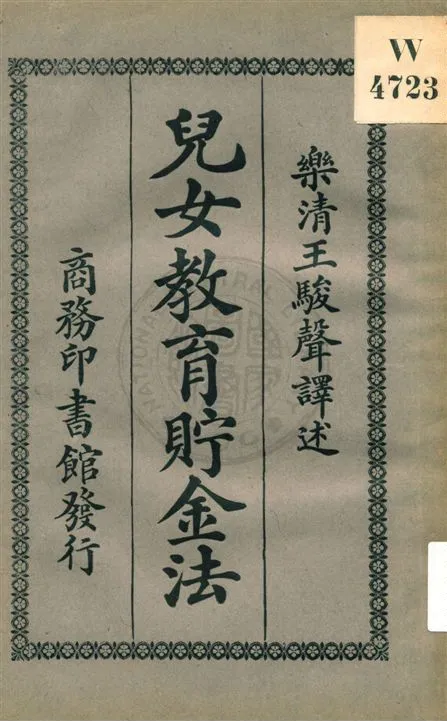 W
4723
樂清王駿聲譯述
兒女教育貯金法
商務印書館發行